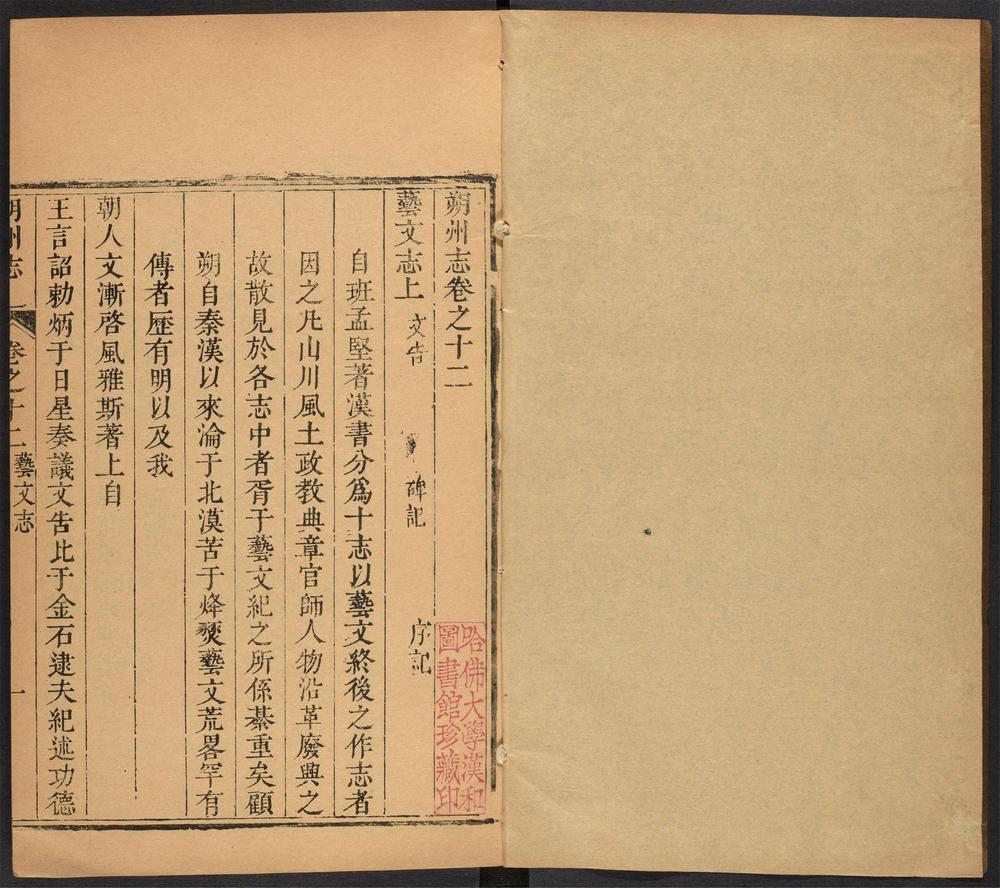 朔州志卷之十二
藝文志上 文告 碑記 序記
自班孟堅著漢書分爲十志以藝文終後之作志者
因之凡山川風土政教典章官師人物沿革廢興之
故散見於各志中者胥于藝文紀之所係綦重矣顧
朔自秦漢以來淪于北漠苦于烽燹藝文荒畧罕有
傳者歷有明以及我
朝人文漸啓風雅斯著上自
王言詔勅炳于日星奏議文告比于金石逮夫紀述功德
朔州志 卷之十二 藝文志 一
哈佛大學漢和
圖書館珍藏印